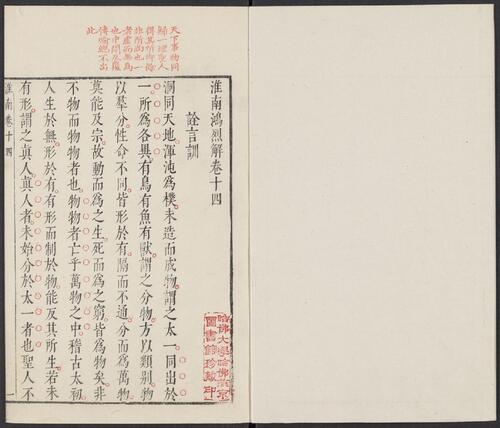 天下事物同
歸一理聖人
得其所
非所尚也一
者虛而無為
也中間反覆
傳喻總不出
此
淮南鴻烈解卷十四
詮言訓
洞同天地渾沌為樸未造而成物謂之太一同出於
一所為各異有鳥有魚有獸謂之分物方以類別物
以羣分性命不同皆形於有隔而不通分而為萬物
莫能及宗故動而為之生死而為之窮皆為物矣非
不物而物物者也物物者亡乎萬物之中稽古太初
人生於無形於有有形而制於物能反其所生若未
有形謂之眞人眞人者未始分於太一者也聖人不
淮南卷十四
一
哈佛大學哈佛燕京
圖書館珍藏印